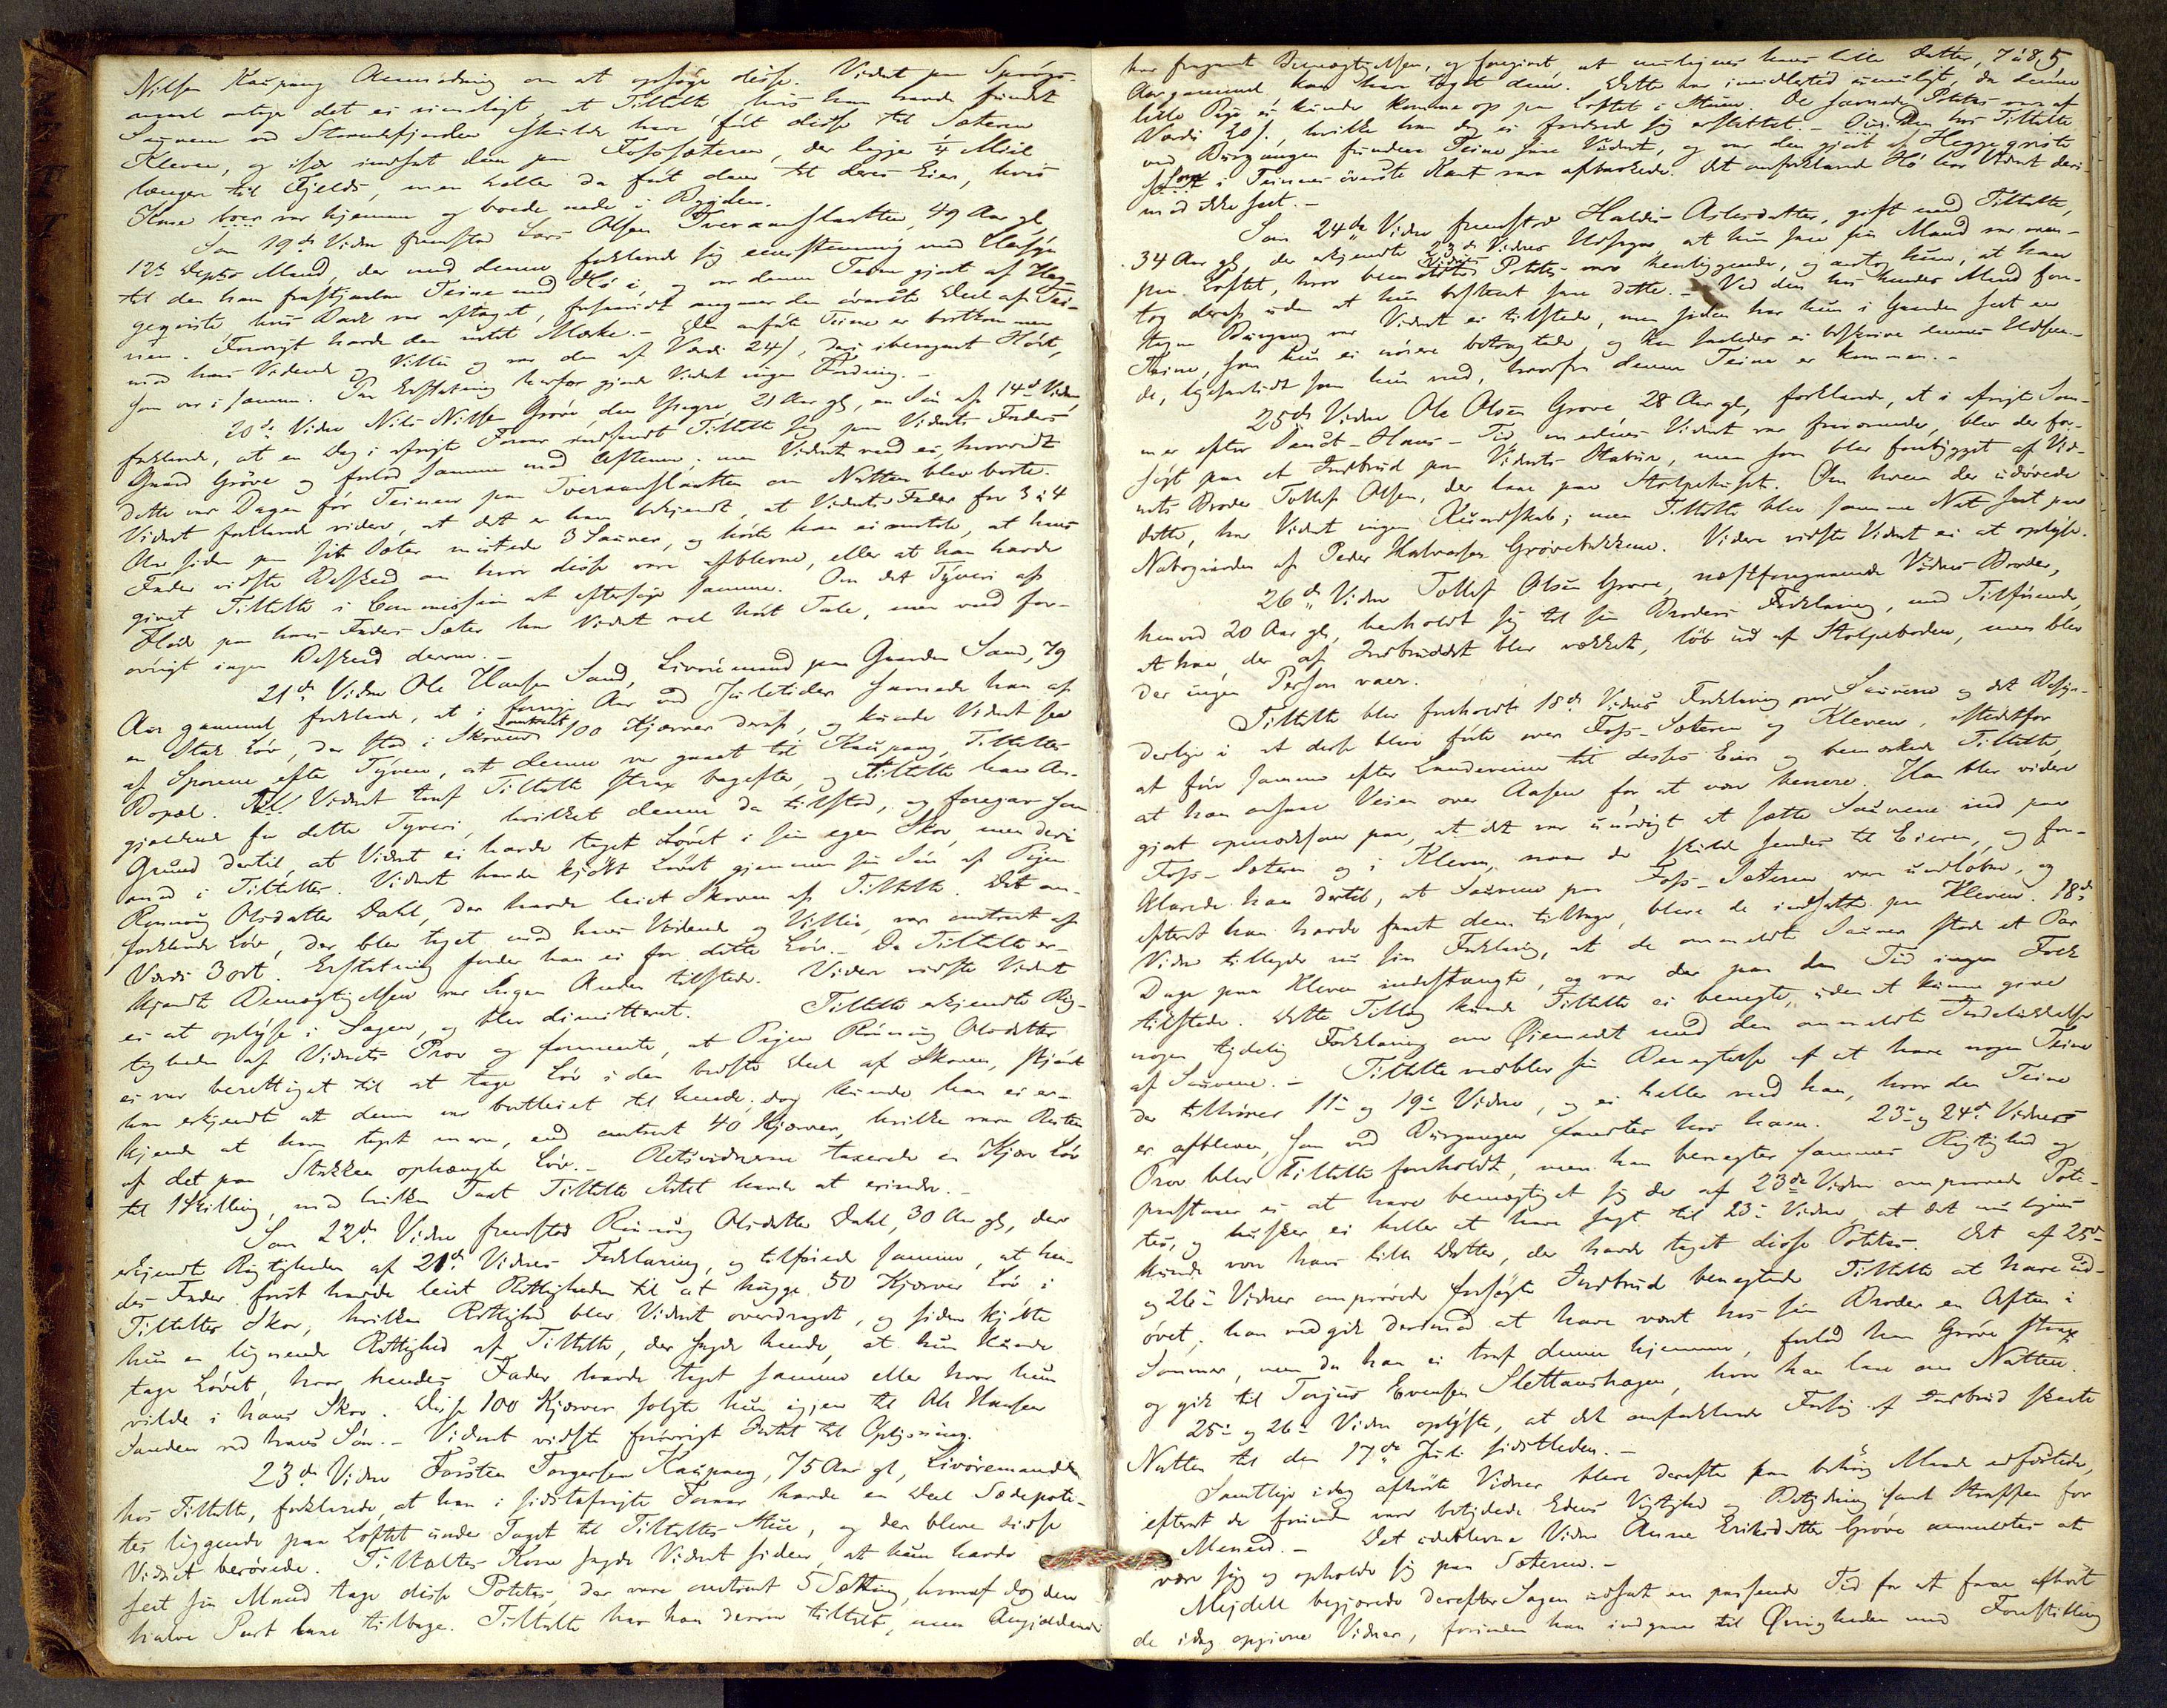 Nilsen Kaupang Anmodning om at opsøge disse. Vidnet paa Spørgs-
maal antog det ei rimeligt, at Tiltalte, hvis han havde fundet
Sauerne ved Strandefjorden skulde have ført disse til Sæteren
Kleven, og især indsat dem paa Fossæteren, der ligger 1/4 Miil
længer til Fjelds, men heller da ført dem til deres Eier, hvis
Kone var hjemme og boede nede i Bygden.
Som 19de Vidne fremstod Lars Olsen Tveraaslaatten, 49 Aar gl,
12te Depts Mand, der med denne forklarede sig eensstemmig med Hensyn
til den ham frastjaalne Teine med Hø i, og var denne Teine gjort af Heg-
gegreiste, hvis Bark var aftaget, forsaavidt angaaer den øverste Deel af Tei-
nen. Forøvrigt havde den intet Mærke. – Den anførte Teine er bortkommen
mod hans Vidende og Villie og var den af Værdi 24 s, deri iberegnet Høet,
som var i samme. Paa Erstatning herfor gjorde Vidnet ingen Fordring. –
20de Vidne Nils Nilsen Grøve, den Yngre, 21 Aar gl, en Søn af 14de Vidne,
forklarede, at en Dag i afvigte Foraar indfandt Tiltalte sig paa Vidnets Faders
Gaard Grøve og forlod samme mod Aftenen; men Vidnet veed ei, hvorvidt
dette var Dagen før Teinene paa Tveraaslaatten om Natten blev borte.
Vidnet forklarede videre, at det er ham bekjendt, at Vidnets Fader for 3 à 4
Aar siden paa sit Sæter mistede 3 Sauer, og hørte han ei omtale, at hans
Fader vidste Besked om hvor disse vare afblevne, eller at han havde
givet Tiltalte i Commission at eftersøge samme. Om det Tyveri af
Fløde paa hans Faders Sæter har Vidnet vel hørt Tale, men veed for-
øvrigt ingen Besked derom. –
21de Vidne Ole Hansen Sand, Livøremand paa Gaarden Sand, 79
Aar gammel, forklarede, at i forrige Aar ved Juletider savnede han af
en Stak Løv, der stod i Skoven omtrent 100 Kjærver deraf, og kunde Vidnet see
af Sporene efter Tyven, at denne var gaaet til Kaupang, Tiltaltes
Bopæl. Vidnet traf Tiltalte strax bagefter, og tiltalte ham An-
gjældende for dette Tyveri, hvilket denne da tilstod, og foregav som
Grund dertil, at Vidnet ei havde taget Løvet i sin egen Skov, men deri-
mod i Tiltaltes. Vidnet havde kjøbt Løvet gjennem sin Søn af Pigen
Rønnaug Olsdatter Dahl, der havde leiet Skoven af Tiltalte. Det om-
forklarede Løv, der blev taget mod hans Vidende og Villie, var omtrent af
Værdi 3 ort. Erstatning fordrer han ei for dette Løv. – Da Tiltalte er-
kjendte Bemægtigelsen var Ingen Anden tilstede. Videre vidste Vidnet
ei at oplyse i Sagen, og blev dimitteret. Tiltalte erkjendte Rig-
tigheden af Vidnets Prov og formeente, at Pigen Rønnaug Olsdatter
ei var berettiget til at tage Løv i den bedste Deel af Skoven, skjønt
han erkjendt at denne var bortleiet til hende; dog kunde han ei er-
kjende at have taget mere, end omtrent 40 Kjærver, hvilke vare Resten
af det paa Stakken ophængte Løv. – Retsvidnerne taxerede en Kjærv Løv
til 1 Skilling, mod hvilken Taxt Tiltalte Intet havde at erindre. –
Som 22de Vidne fremstod Rønnaug Olsdatter Dahl, 30 Aar gl, der
erkjendte Rigtigheden af 21de Vidnes Forklaring, og tilføiede samme, at hen-
des Fader først havde leiet Rettigheden til at hugge 50 Kjærver Løv i
Tiltaltes Skov, hvilken Rettighed blev Vidnet overdraget, og siden kjøbte
hun en lignende Rettighed af Tiltalte, der sagde hende, at hun kunde
tage Løvet, hvor hendes Fader havde taget samme eller hvor hun
vilde i hans Skov. Disse 100 Kjærver solgte hun igjen til Ole Hansen
Sanden ved hans Søn. – Vidnet vidste forøvrigt Intet til Oplysning.
23de Vidne Torsten Torgersen Kaupang, 75 Aar gl, Livøremand
hos Tiltalte, forklarede, at han i sidstafvigte Foraar havde en Deel Sædepote-
tes liggende paa Loftet under Taget til Tiltaltes Stue, og der bleve disse
Vidnet berøvede. Tiltaltes Kone sagde Vidnet siden, at hun havde
seet sin Mand tage disse Potetes, der vare omtrent 5 Sætting, hvoraf dog den
halve Part laae tilbage. Tiltalte har han derom tiltalt, men Angjældende
har fragaaet Bemægtigelsen, og foregivet at muligens hans lille Datter, 7 à 8
5
Aar gammel kan have taget dem. Dette har imidlertid umuligt, da denne
lille Pige ei kunde komme op paa Loftet i Stuen. De savnede Potetes vare af
Værdi 20 s., hvilke han dog ei fordrede sig erstattet. – Den hos Tiltalte
ved Ransagningen fundne Teine saae Vidnet, og var den gjort af Heggegreiste
i Teinens øverste Kant vare afbarkede. Det omforklarede Hø har Vidnet deri-
mod ikke seet. –
Som 24de Vidne fremstod Haldis Aslesdatter, gift med Tiltalte,
34 Aar gl, der erkjendte 23de Vidnes Udsagn, at hun saae sin Mand var oven-
paa Loftet, hvor bemeldte Vidnes Potetes vare henliggende, og antog hun, at han
tog deraf, uden at hun bestemt saae dette. – Ved den hos hendes Mand fore-
tagne Ransagning var Vidnet ei tilstede, men siden har hun i Gaarden seet en
Teine, som hun ei nøiere betragtede, og kan saaledes ei beskrive dennes Udseen-
de, ligesaalidt som hun veed, hvorfra denne Teine er kommen. –
25de Vidne Ole Olsen Grøve 28 Aar gl, forklarede, at i afvigte Som-
mer efter Sanct-Hans-Tid, medens Vidnet var fraværende, blev der for-
søgt paa et Indbrud paa Vidnets Stabur, men som blev forebygget af Vid-
nets Broder Tollef Olsen, der laae paa Stolpehuset. Om hvem der udøvede
dette, har Vidnet ingen Kundskab; men Tiltalte blev samme Nat seet paa
Nabogaarden af Peder Halvorsen Grøvebakkene. Videre vidste Vidnet ei at oplyse.
26de Vidne Tollef Olsen Grøve, næstforegaaende Vidnes Broder,
henved 20 Aar gl, henholdt sig til sin Broders Forklaring, med Tilføiende,
at han, der af Indbruddet blev vækket, løb ud af Stolpeboden, men blev
der ingen Person vaer.
Tiltalte blev foreholdt 18de Vidnes Forklaring om Sauerne og det Besyn-
derlige i at disse blev førte over Fos-Sæteren og Kleven, istedetfor
at føre samme efter Landeveien til disses Eier og bemærkede Tiltalte,
at han ansaae Veien over Aasen for at være kortere. Han blev videre
gjort opmærksom paa, at det var unødigt at sætte Sauerne ind paa
Fos-Sæteren og i Kleven, naar de skulde sendes til Eieren, og for-
klarede han dertil, at Sauerne paa Fos-Sæteren vare undløbne, og
efterat han havde faaet dem tilbage, bleve de indsatte paa Kleven. 18de
Vidne tillagde nu sin Forklaring, at de ommeldte Sauer stode et Par
Dage paa Kleven indestængte, og var der paa den Tid ingen Folk
tilstede. Dette Tillæg kunde Tiltalte ei benegte, uden at kunne give
nogen tydelig Forklaring om Øiemedet med den ommeldte Indelukkelse
af Sauerne. – Tiltalte vedblev sin Benegtelse af at have nogen Teine
der tilhører 11te og 19de Vidne, og ei heller veed han, hvor den Teine
er afbleven, som ved Ransagningen fandtes hos ham. 23de og 24de Vidners
Prov blev Tiltalte foreholdt, men han benegter sammes Rigtighed og
paastaaer ei at have bemægtiget sig de af 23de Vidne omprovede Pote-
tes, og husker ei heller at have sagt til 23de Vidne, at det muligens
kunde være hans lille Datter, der havde taget disse Potetes. Det af 25de
og 26de Vidner omprovede forsøgte Indbrud benegtede Tiltalte at have ud-
øvet; han vedgik derimod at have været hos sin Broder en Aften i
Sommer, men da han ei traf denne hjemme, forlod han Grøve strax
og gik til Torjus Evensen Slettanshagen, hvor han laae om Natten.
25de og 26de Vidne oplyste, at det omforklarede Forsøg af Indbrud skeete
Natten til den 17de Juli sidstleden. –
Samtlige idag afhørte Vidner bleve derefter paa behørig Maade edfæstede,
efterat de forinden vare betydede Edens Vigtighed og Betydning samt Straffen for
Meneed. – Det udeblevne Vidne Anne Eriksdatter Grøve anmeldtes at
være syg og opholde sig paa Sæteren. –
Mejdell begjærede derefter Sagen udsat en passende Tid for at faae afhørt
de idag opgivne Vidner, forinden han indgaaer til Øvrigheden med Forestilling